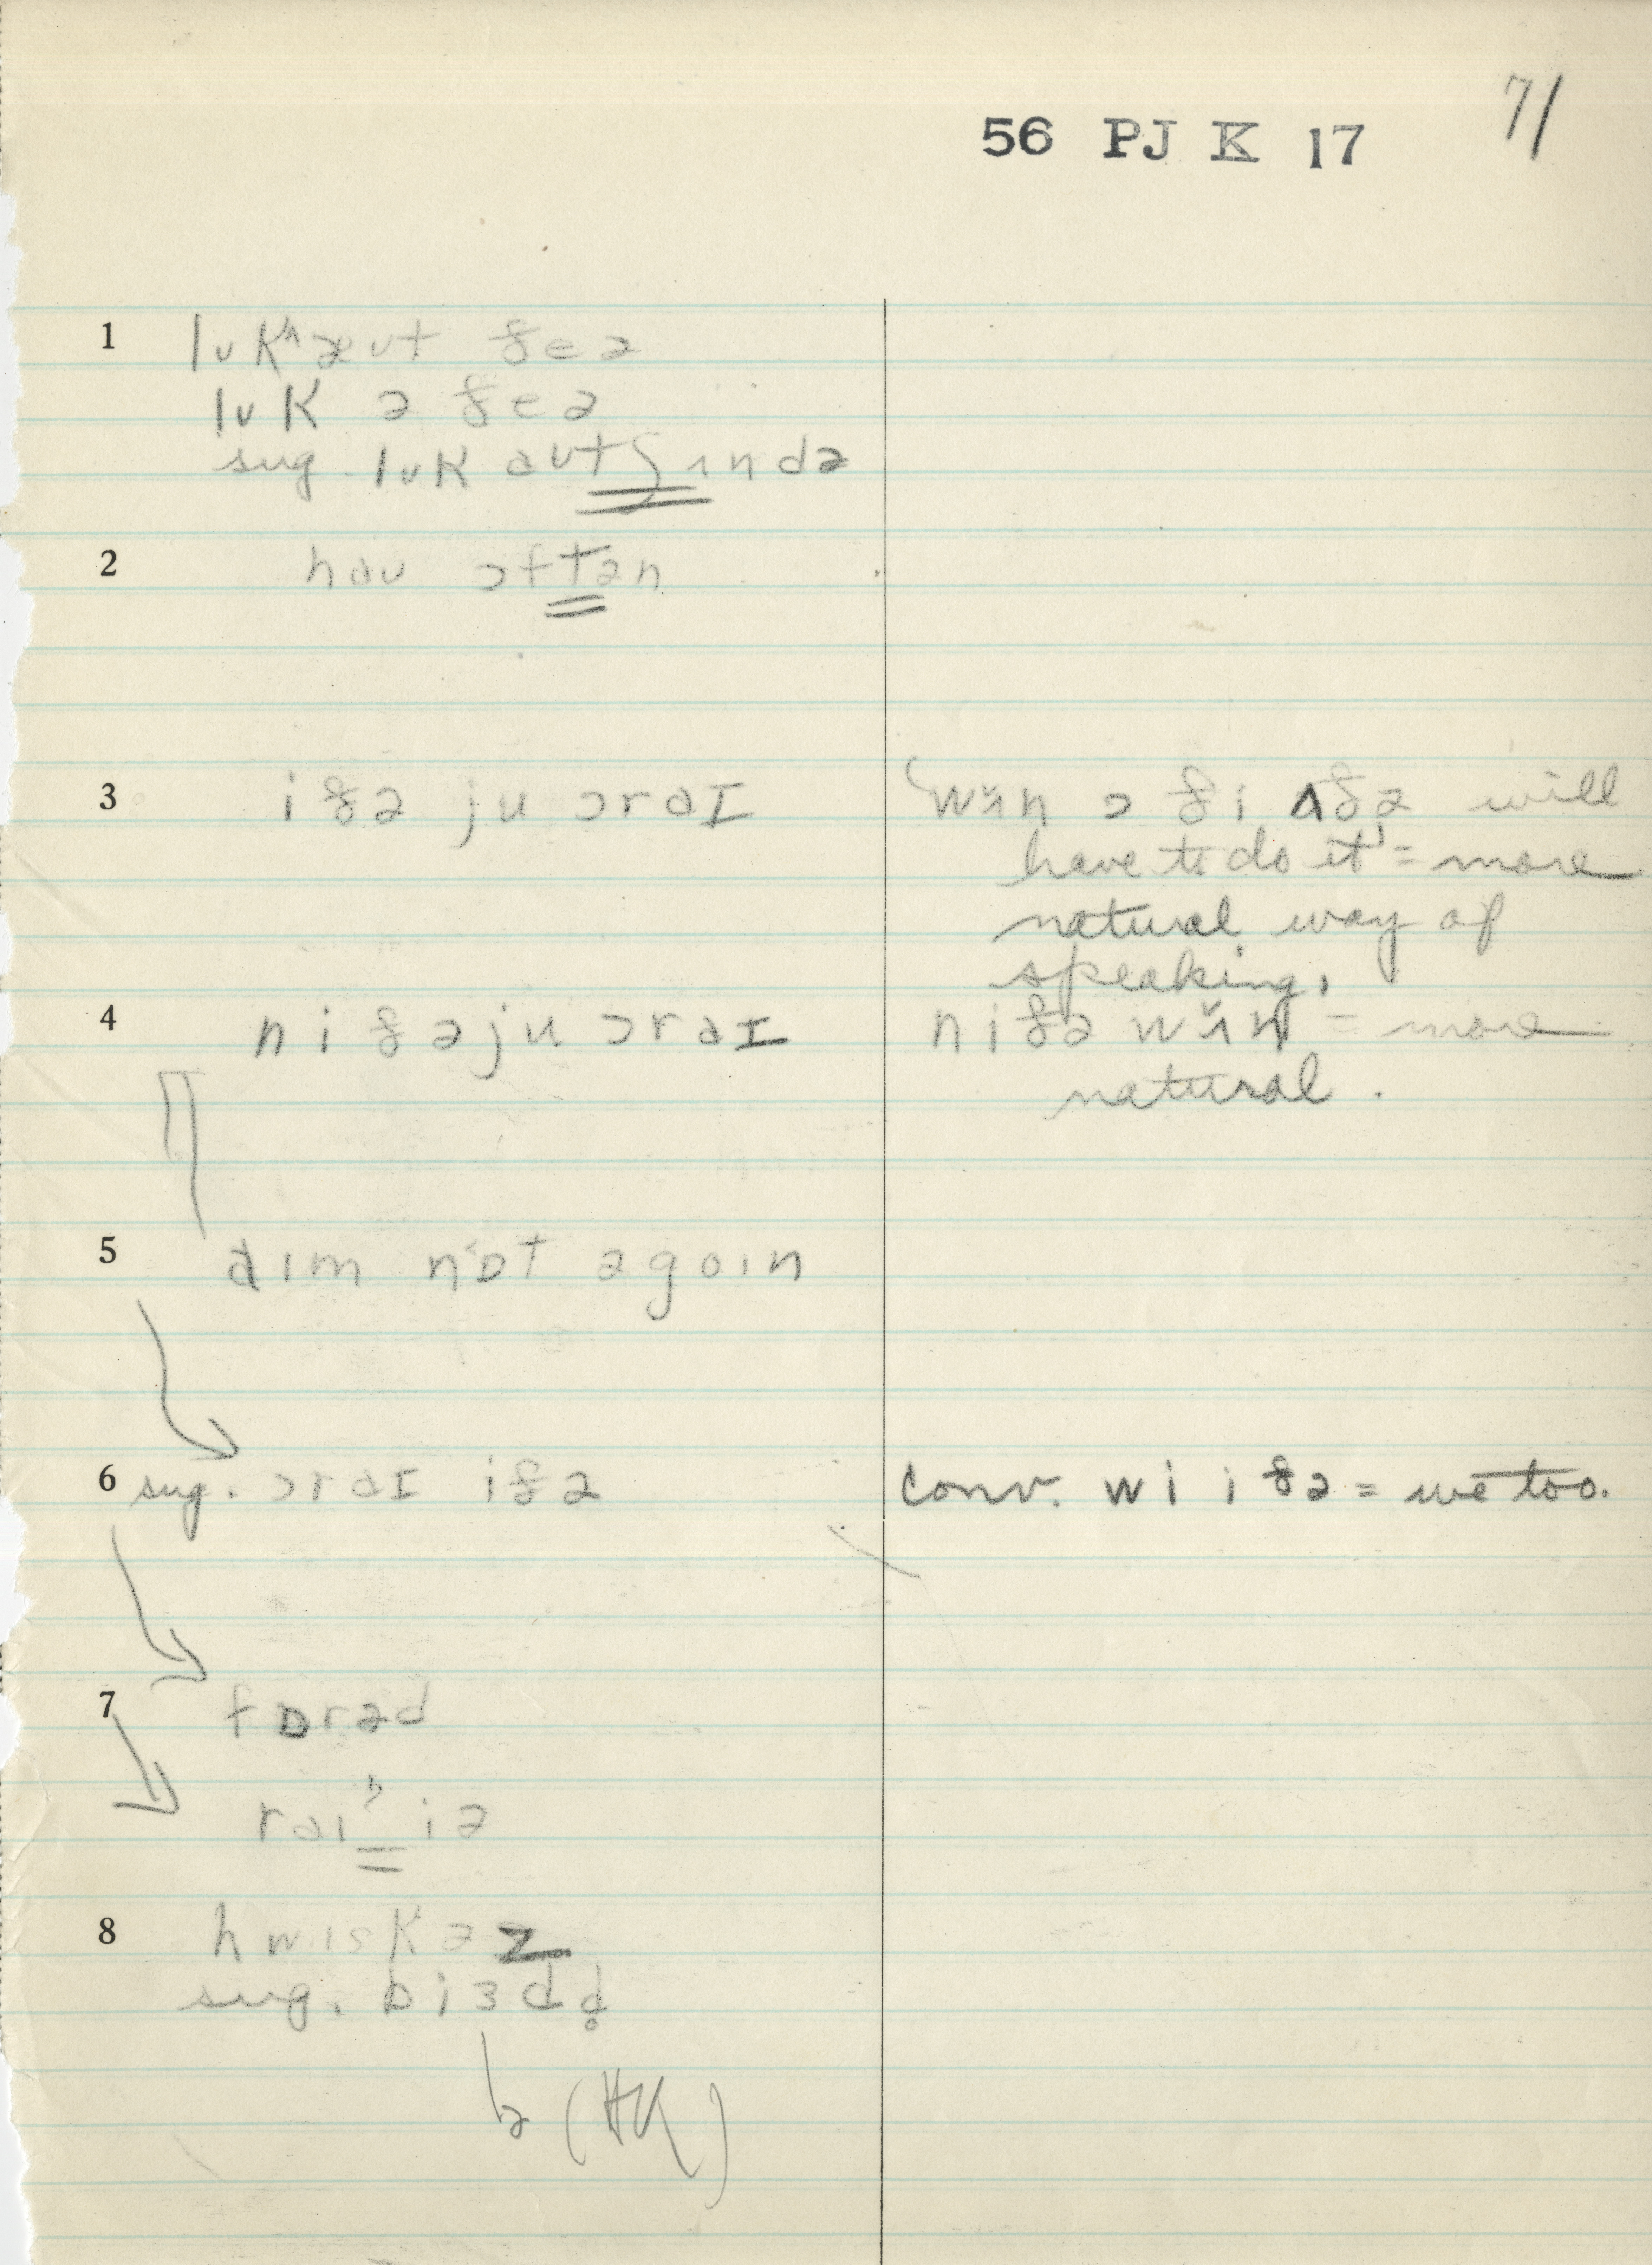 56 PJ K 17 71
1 lʊk^æʊt ðeə
lʊk ə ðeə
sug. lʊk aʊt ʃɪndə
2 haʊ ɔftən
3 iðə ju ɔr aɪ
'wʌ̆n ɔ ði ʌðə will
have to do it' = more
natural way of
speaking.
4 niðə ju ɔr aɪ
niðə wʌ̆n = more
natural.
5 aɪm nɒt əgoɪn
6 sug. ɔr aɪ iðə
conv. wi iðə = we too.
7 fɒrəd
raɪ iə
8 hwɪskəz
sug. biɜd
ə (HK)